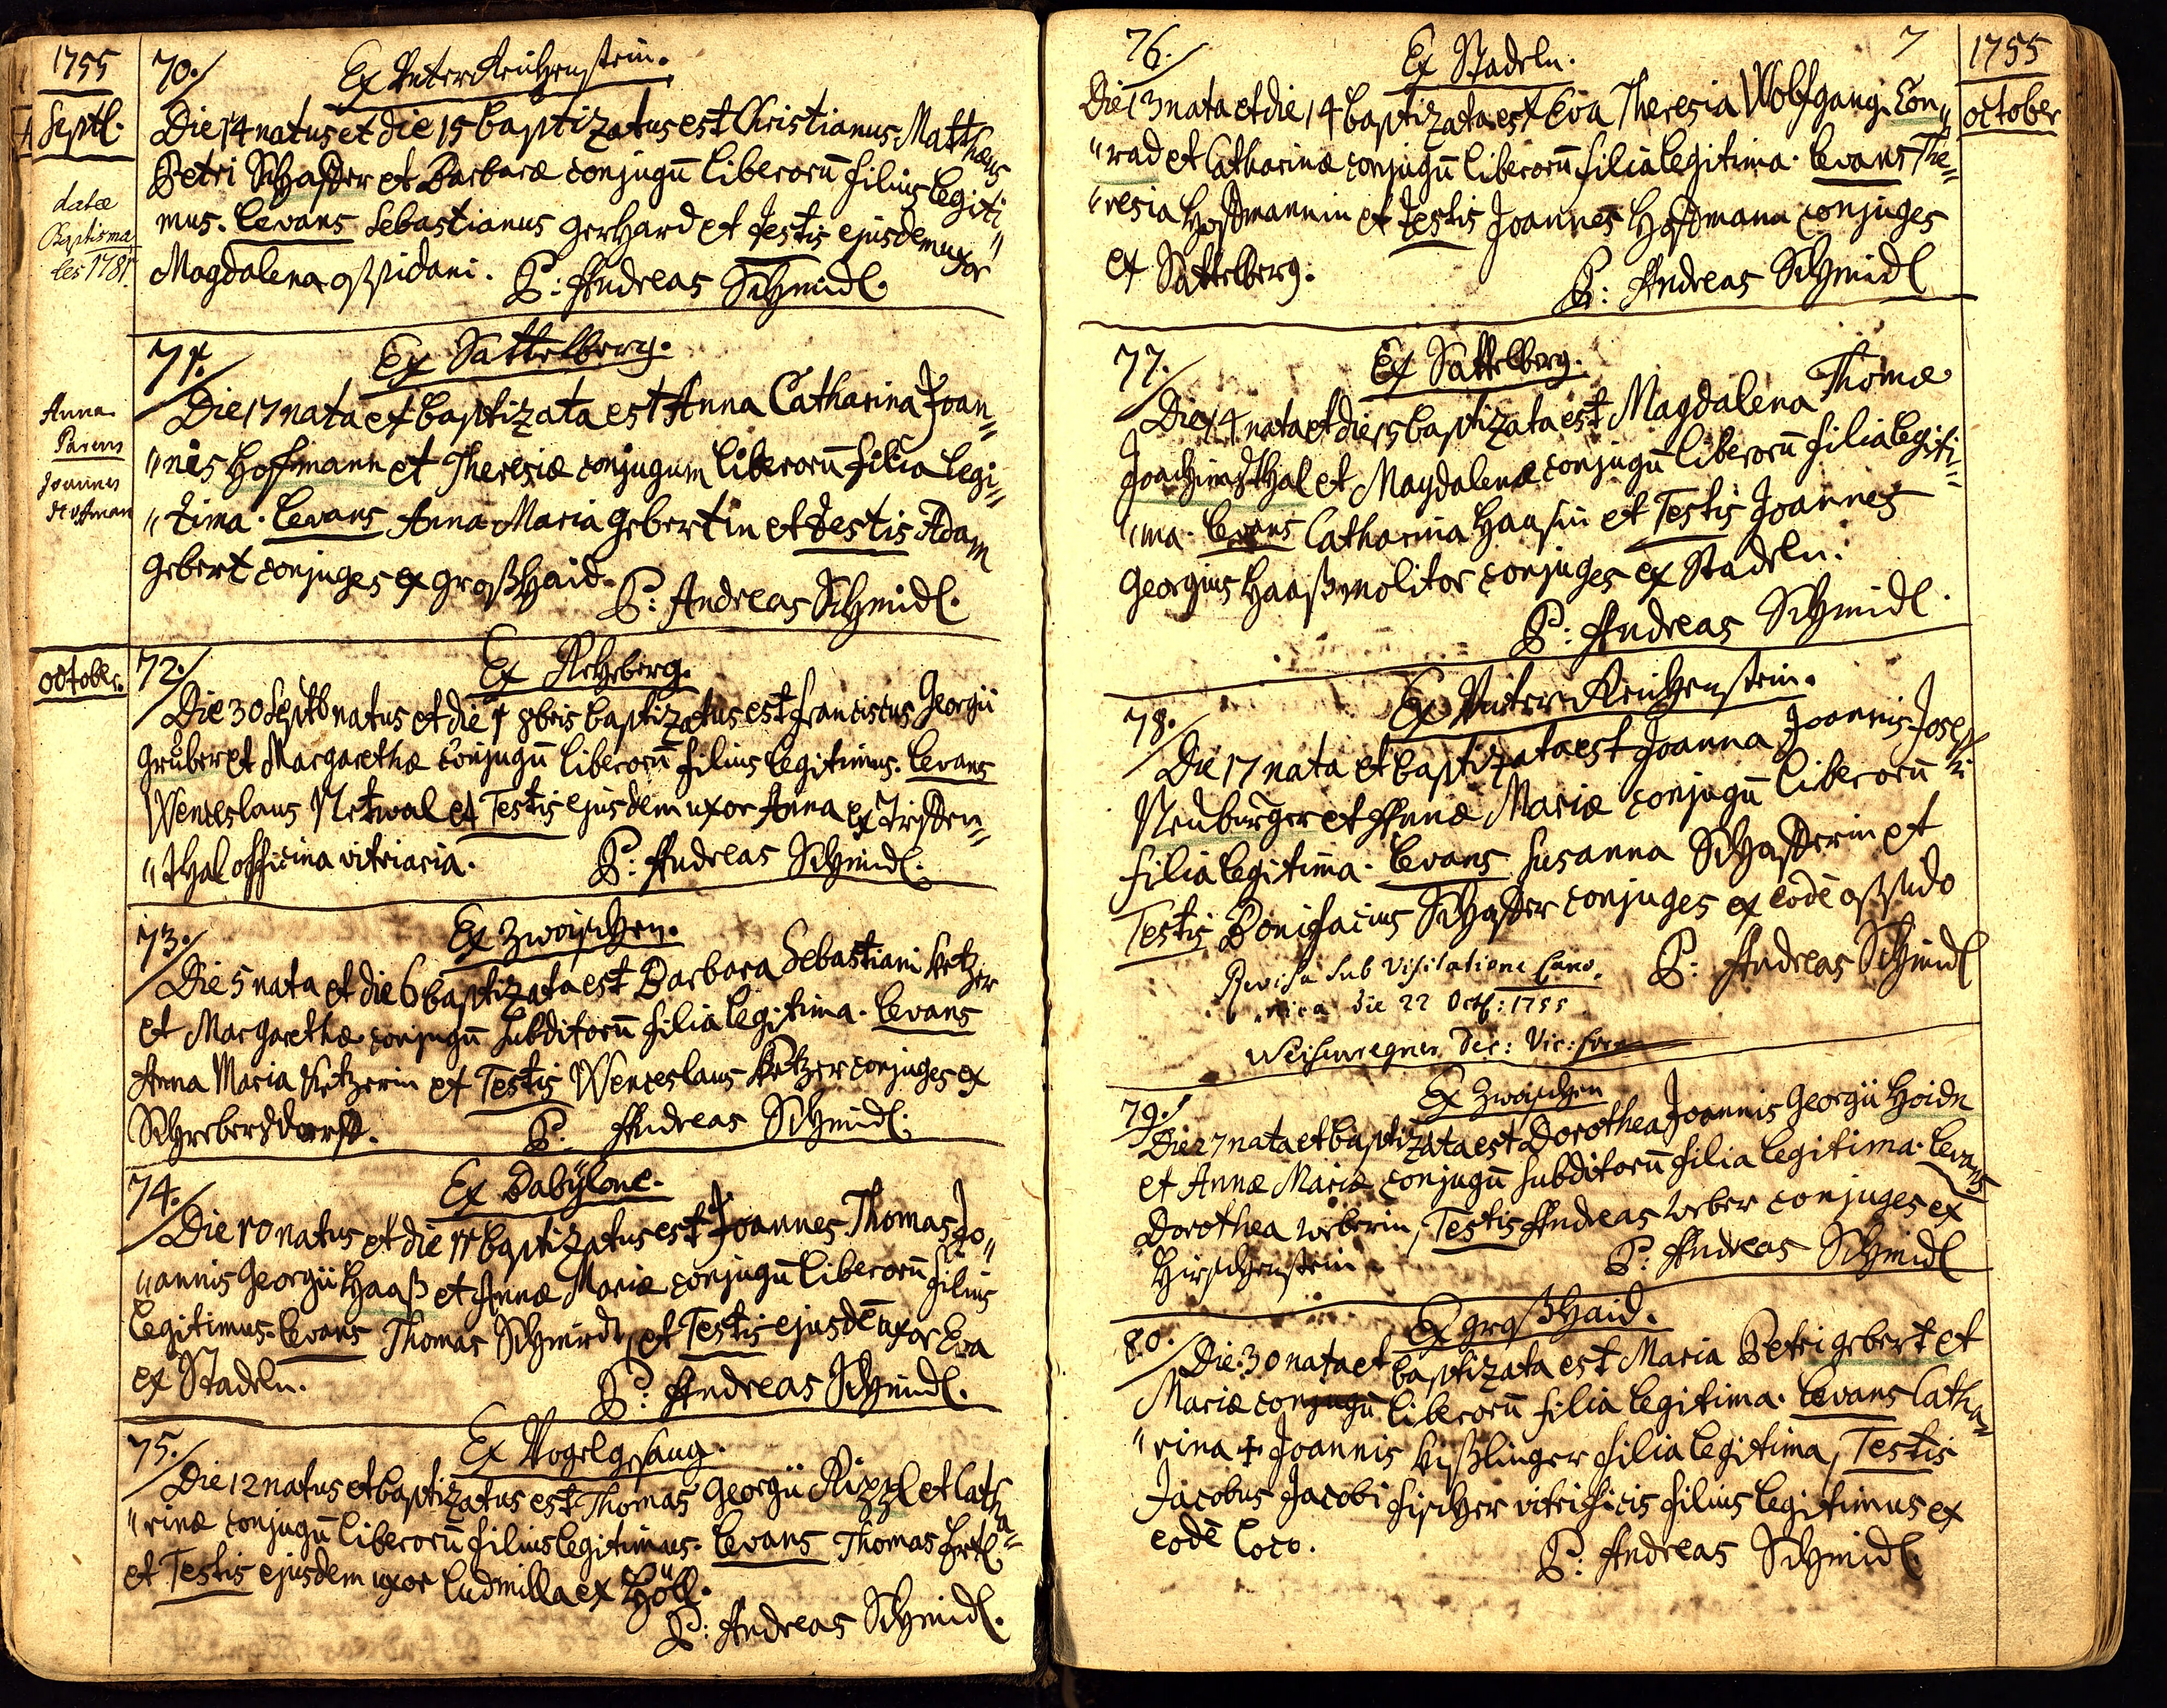 1755
Septl.
datæ
Baptisma
les 1781.
70./ Ex Unter Reichenstein.
Die 14 natus et die 15 baptizatus est Christianus Matthæus
Petri Schaffer et Barbaræ conjugū liberorū filius legiti„
mus. Levans Sebastianus Gerhard et Testis ejusdem uxor
Magdalena oppidani. P: Andreas Schmidl.
Anna
Parens
Joannes
Hoffman
71./ Ex Sattelberg.
Die 17 nata et baptizata est Anna Catharina Joan„
„nis Hoffmann et Theresiæ conjugum liberorū filia legi„
„tima. Levans Anna Maria Gebertin et Testis Adam
Gebert conjuges ex Großhaid. P: Andreas Schmidl.
October.
72./ Ex Rehberg.
Die 30 Septb natus et die 1 8bris baptizatus est Franciscus Georgii
Gruber et Margarethæ conjugū liberorū filius legitimus. Levans
Wenceslaus Netwal et Testis ejusdem uxor Anna ex
„thal officina vitriaria. P: Andreas Schmidl.
73./ Ex Zwoischen.
Die 5 nata et die 6 baptizata est Barbara Sebastiani Ketzer
et Margarethæ conjugū subditorū filia legitima. Levans
Anna Maria Ketzerin et Testis Wenceslaus Ketzer conjuges ex
Schrebersdorff. P. Andreas Schmidl.
74./ Ex Babÿlone.
Die 10 natus et die 11 baptizatus est Joannes Thomas Jo„
„annis Georgii Haaß et Annæ Mariæ conjugū liberorū filius
legitimus. Levans Thomas Schmirdt, et Testis ejusdē uxor Eva
ex Stadeln. P: Andreas Schmidl.
75./ Ex Vogelgesang.
Die 12 natus et baptizatus est Thomas Georgii Rizzl et Catha„
„rinæ conjugū liberorū filius legitimus. Levans Thomas Ertl
et Testis ejusdem uxor Ludmilla ex Höll.
P: Andreas Schmidl.
76./ Ex Stadeln. 7
1755
October
Die 13 nata et die 14 baptizata est Eva Theresia Wolfgang Con„
„rad et Catharinæ conjugū liberorū filia legitima. Levans The„
„resia Hoffmannin et Testis Joannes Hoffmann conjuges
ex Sattelberg. P: Andreas Schmidl
77./ Ex Sattelberg.
Die 14 nata et die 15 baptizata est Magdalena Thomæ
Joachimsthal et Magdalenæ conjugū liberorū filia legiti„
„ma. Levans Catharina Haasin et Testis Joannes
Georgius Haaß molitor conjuges ex Stadeln.
P: Andreas Schmidl.
78./ Ex Unter Reichenstein.
Die 17 nata et baptizata est Joanna Joannis Josephi
Neuburger et Annæ Mariæ conjugū liberorū
filia legitima. Levans Susanna Schafferin et
Testis Bonifacius Schaffer conjuges ex eodē oppido
P: Andreas Schmidl
Revisa sub Visitatione Cano„
„nica die 22 Octb: 1755
Dec: Vic: For
79./ Ex Zwoischen
Die 27 nata et baptizata est Dorothea Joannis Georgii Hoidn
et Annæ Mariæ conjugū subditorū filia legitima. Levans
Dorothea Weberin, Testis Andreas Weber conjuges ex
Hirschenstein. P: Andreas Schmidl
80./ Ex Großhaid.
Die 30 nata et baptizata est Maria Petri Gebert et
Mariæ conjugū liberorū filia legitima. Levans Catha„
„rina ‡ Joannis Kißlinger filia legitima, Testis
Jacobus Jacobi Fischer vitrificis filius legitimus ex
eodē loco. P: Andreas Schmidl.